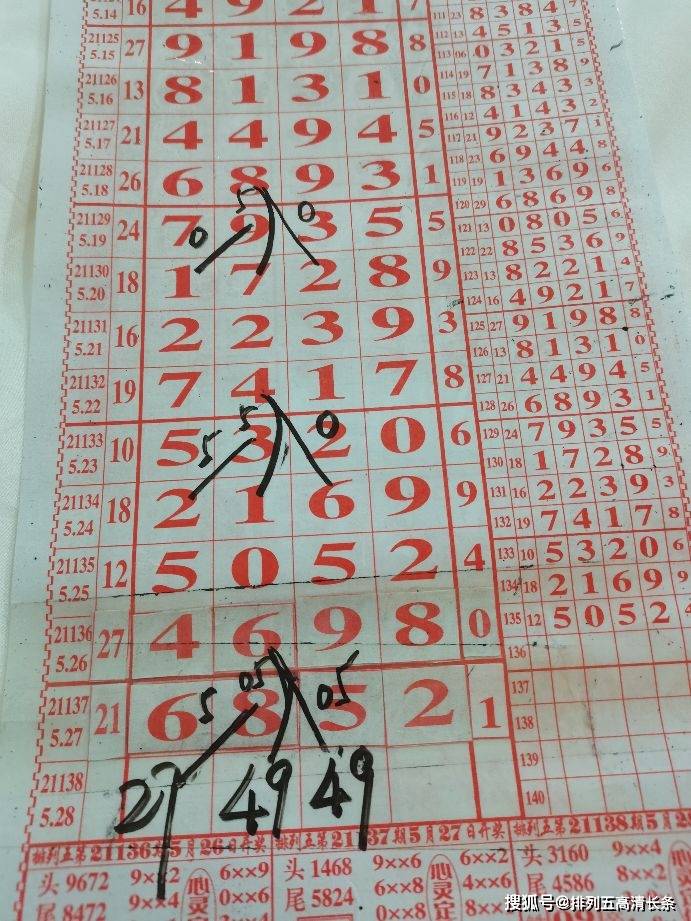 5.14 16 4 9 2 1 7
21125 5.15 27 9 1 9 8 8
21126 5.16 13 8 1 3 1 0
21127 5.17 21 4 4 9 4 5
21128 5.18 26 6 8 9 3 1
5 0
21129 5.19 24 7 9 3 5 5
0
21130 5.20 18 1 7 2 8 9
21131 5.21 16 2 2 3 9 3
21132 5.22 19 7 4 1 7 8
5 0
21133 5.23 10 5 3 2 0 6
5
21134 5.24 18 2 1 6 9 9
21135 5.25 12 5 0 5 2 4
21136 5.26 27 4 6 9 8 0
05 05
21137 5.27 21 6 8 5 2 1
5
21138 5.28
27 49 49
111 23 8 3 8 4 7
112 13 4 5 1 3 5
113 06 0 3 2 1 5
114 19 7 1 3 8 9
115 18 8 3 4 3 3
116 12 4 1 4 3 2
117 21 9 2 3 7 1
118 23 6 9 4 4 8
119 19 1 3 6 9 6
120 29 6 8 6 9 8
121 13 0 8 0 5 6
122 22 8 5 3 6 9
123 13 8 2 2 1 4
124 16 4 9 2 1 7
125 27 9 1 9 8 8
126 13 8 1 3 1 0
127 21 4 4 9 4 5
128 26 6 8 9 3 1
129 24 7 9 3 5 5
130 18 1 7 2 8 9
131 16 2 2 3 9 3
132 19 7 4 1 7 8
133 10 5 3 2 0 6
134 18 2 1 6 9 9
135 12 5 0 5 2 4
136
137
138
139
140
排列五第21136期5月26日开奖
头 9672 6××9
尾 8472 9××4 0××6
心灵
排列五第21137期5月27日开奖
头 1468 9××6 6××2
尾 5824 6××8 4××6
心灵
排列五第21138期5月28
头 3160 9××4
尾 4586 8××2
心灵
搜狐号@排列五高清长条